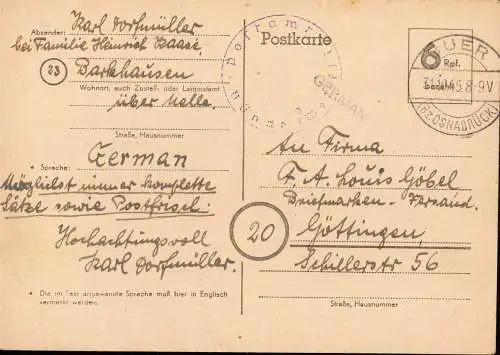 Absender: Karl Dorfmüller
bei Familie Heinrich Haase,
23 Barkhausen
Wohnort, auch Zustell- oder Leitpostamt
über Melle
Straße, Hausnummer
German
• Sprache:
Möglichst immer komplette
Sätze sowie Postfrisch
Hochachtungsvoll
Karl Dorfmüller.
• Die im Text angewandte Sprache muß hier in Englisch
vermerkt werden.
Postkarte
6 Rpf.
bezahlt
BUER
31.10.45.8-9V
(Bz. OSNABRÜCK)
GERMAN
An Firma
F. A. Louis Göbel
Briefmarken-Versand.
20 Göttingen
Schillerstr 56
Straße, Hausnummer